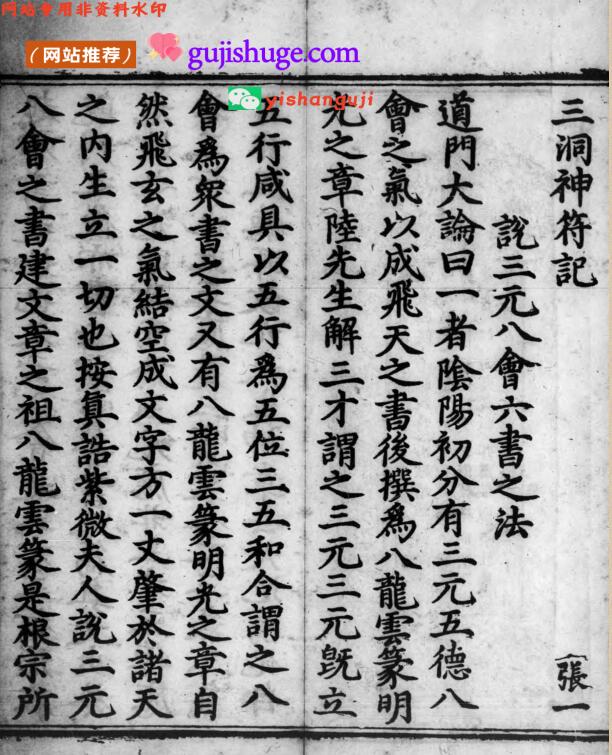 网站专用非资料水印
(网站推荐)
gujishuge.com
yishanguji
三洞神符記
張一
說三元八會六書之法
道門大論曰一者陰陽初分有三元五德八
會之氣以成飛天之書後撰爲八龍雲篆明
光之章陸先生解三才謂之三元三元旣立
五行咸具以五行爲五位三五和合謂之八
會爲衆書之文又有八龍雲篆明光之章自
然飛玄之氣結空成文字方一丈肇於諸天
之内生立一切也按眞誥紫微夫人說三元
八會之書建文章之祖八龍雲篆是根宗所